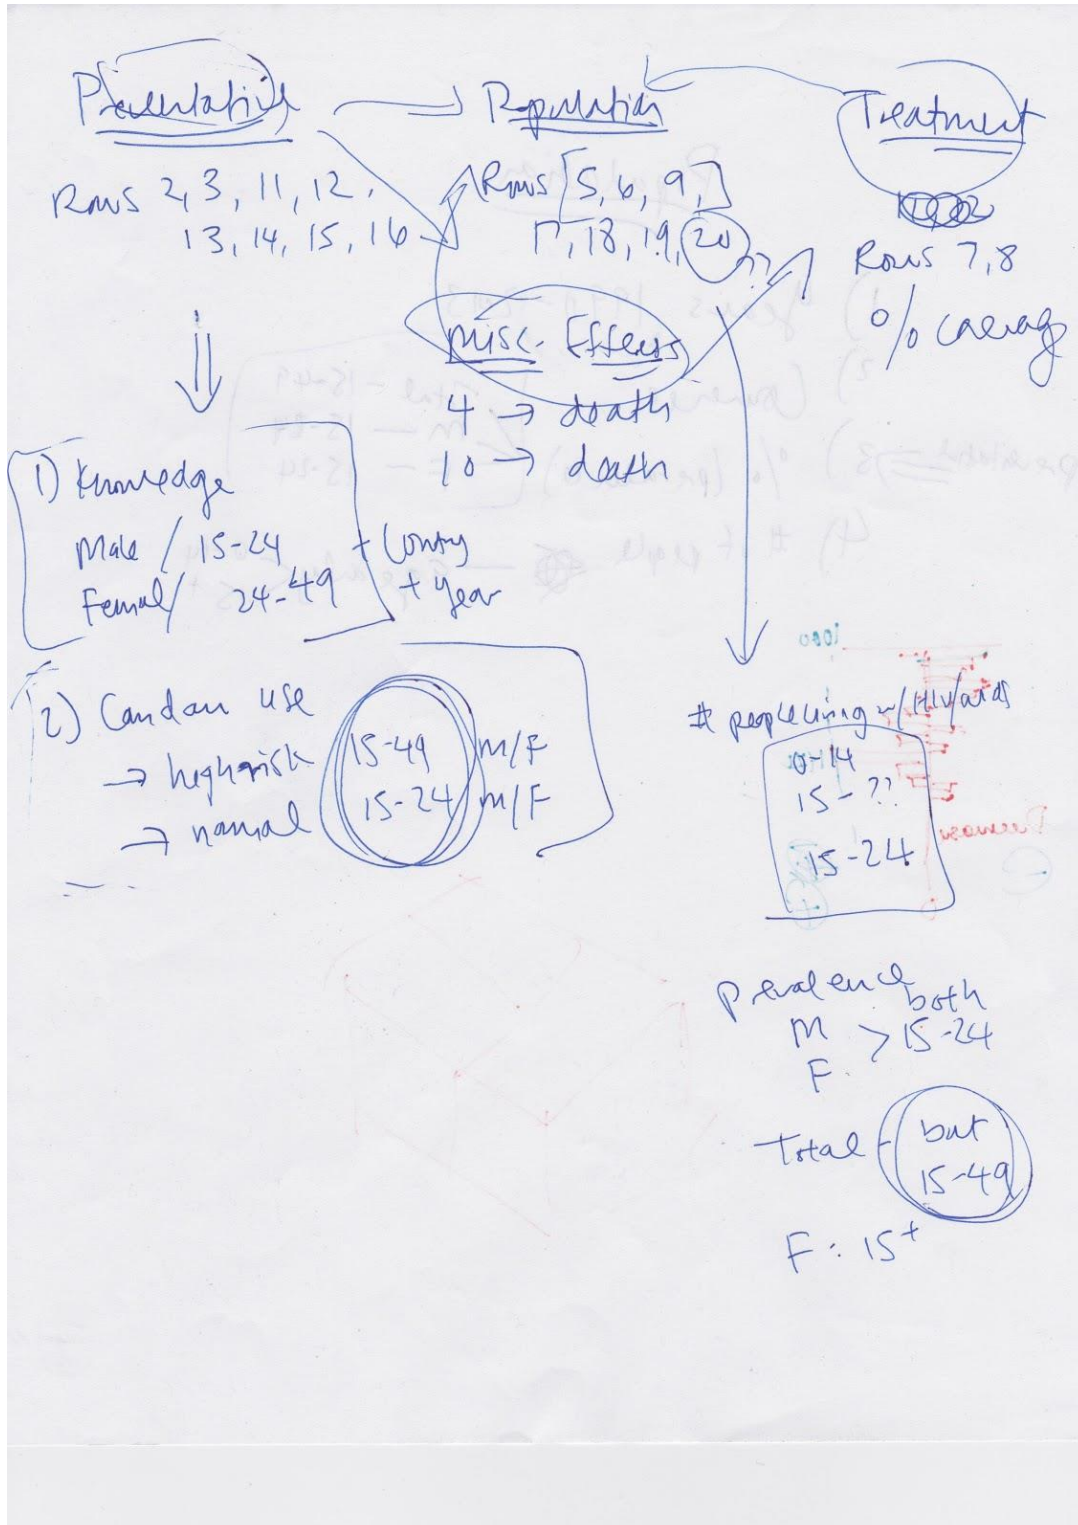 Preventative
Population
Treatment
Rows 2, 3, 11, 12,
13, 14, 15, 16
Rows [5, 6, 9,]
17, 18, 19, 20 ??
Rows 7, 8
% coverag
Misc. Effects
4 → death
10 → death
1) Knowledge
Male / 15-24 + Contry
Female / 24-49 + year
2) Condom use
→ high risk 15-49 M/F
→ normal 15-24 M/F
# people living w/ HIV/aids
0-14
15-??
15-24
Prevalence
both
M > 15-24
F.
Total - but
15-49
F: 15+